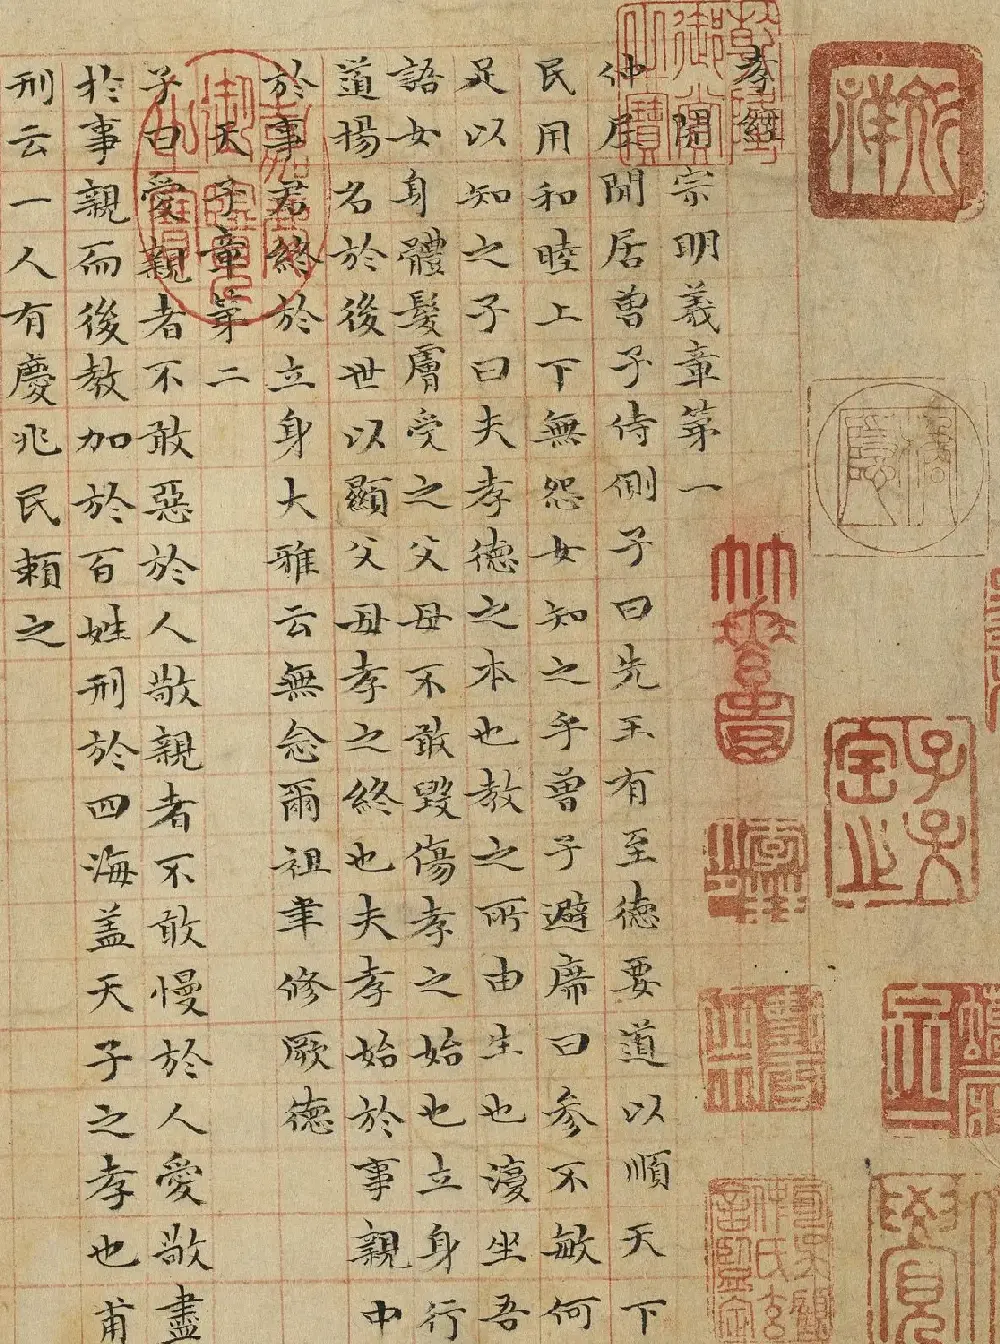 孝經
開宗明義章第一
仲尼閒居曾子侍側子曰先王有至德要道以順天下
民用和睦上下無怨女知之乎曾子避席曰參不敏何
足以知之子曰夫孝德之本也教之所由生也復坐吾
語女身體髮膚受之父母不敢毀傷孝之始也立身行
道揚名於後世以顯父母孝之終也夫孝始於事親中
於事君終於立身大雅云無念爾祖聿修厥德
天子章第二
子曰愛親者不敢惡於人敬親者不敢慢於人愛敬盡
於事親而後教加於百姓刑於四海蓋天子之孝也甫
刑云一人有慶兆民賴之
乾隆御賞之寶
嘉慶御覽之寶